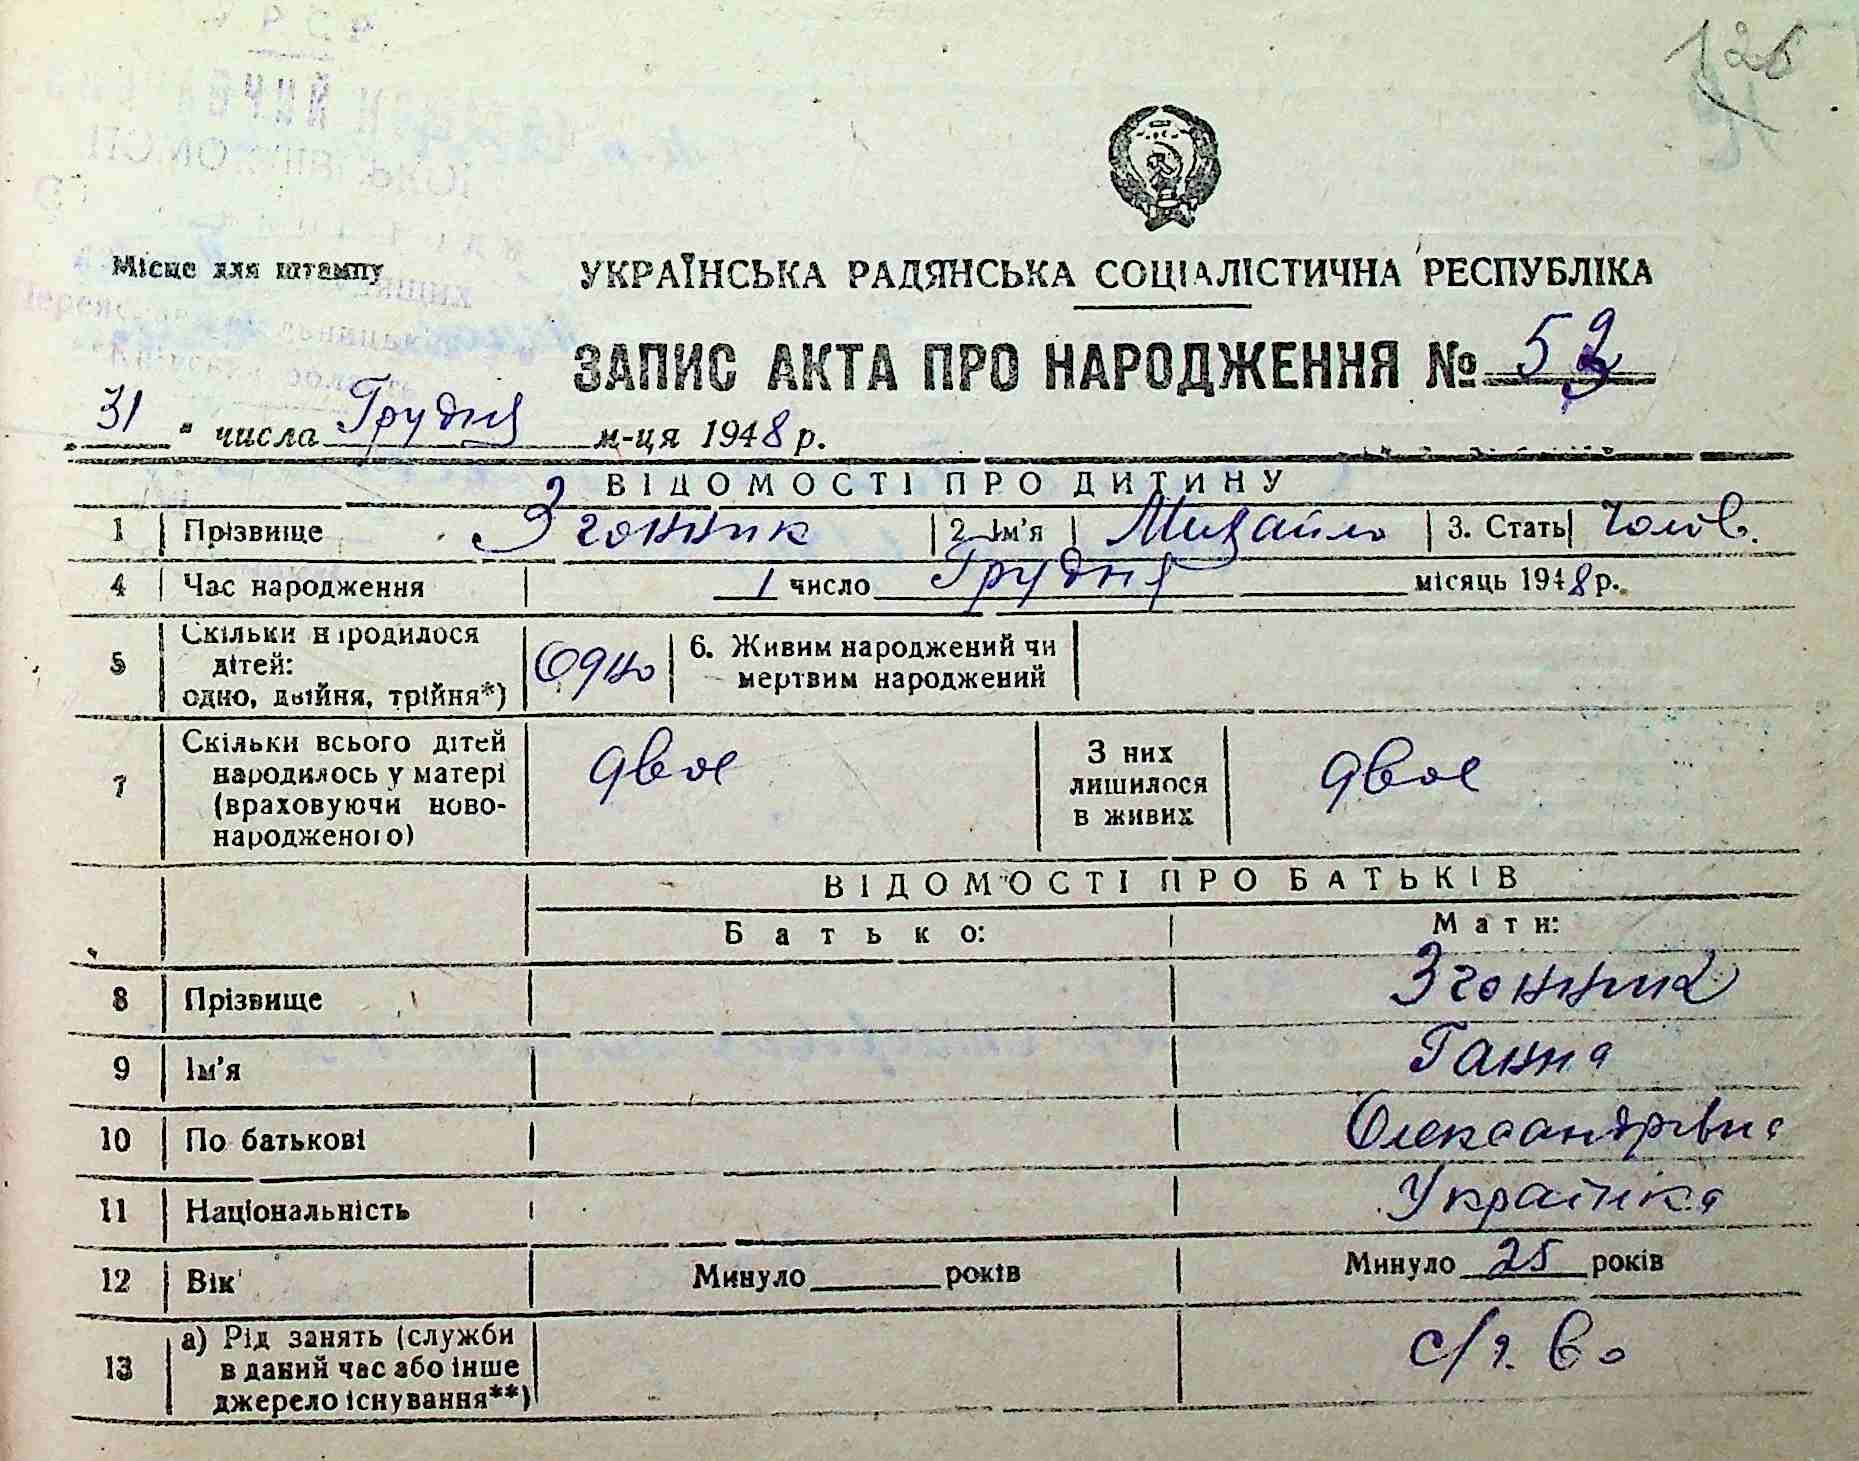 Місце для штампу
УКРАЇНСЬКА РАДЯНСЬКА СОЦІАЛІСТИЧНА РЕСПУБЛІКА
ЗАПИС АКТА ПРО НАРОДЖЕННЯ №
31 " числа Грудня м-ця 1948 р.
ВІДОМОСТІ ПРО ДИТИНУ
1 Прізвище Згонник 2. Ім'я Михайло 3. Стать чолов.
4 Час народження 1 число Грудня місяць 1948 р.
5 Скільки народилося дітей: одно, двійня, трійня*) Одно 6. Живим народжений чи мертвим народжений
7 Скільки всього дітей народилось у матері (враховуючи новонародженого) двое З них лишилося в живих двое
ВІДОМОСТІ ПРО БАТЬКІВ
Батько: Мати:
8 Прізвище Згонник
9 Ім'я Ганна
10 По батькові Олександрівна
11 Національність Українка
12 Вік Минуло років Минуло 25 років
13 а) Рід занять (служби в даний час або інше джерело існування**) с/г. во